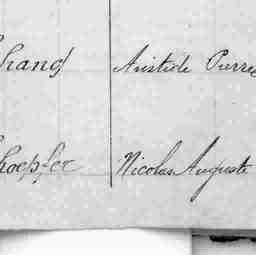 hand Aristide Pierre
hoepfer Nicolas Auguste